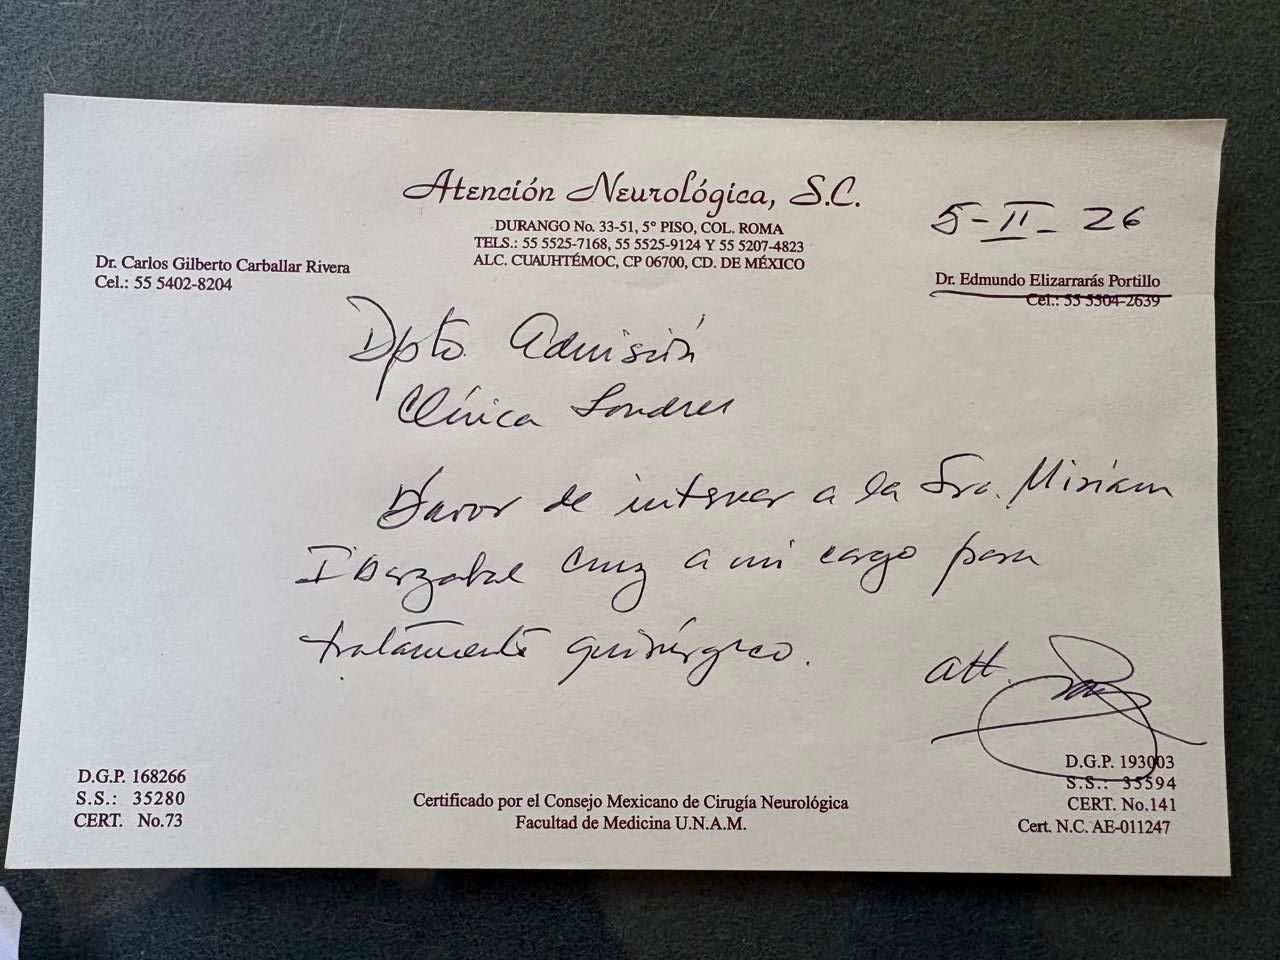 Atención Neurológica, S.C.
DURANGO No. 33-51, 5° PISO, COL. ROMA
TELS.: 55 5525-7168, 55 5525-9124 Y 55 5207-4823
ALC. CUAUHTÉMOC, CP 06700, CD. DE MÉXICO
5-II-26
Dr. Carlos Gilberto Carballar Rivera
Cel.: 55 5402-8204
Dr. Edmundo Elizarrarás Portillo
Cel.: 55 5504-2639
Dpto. Admisión
Clínica Londres
Favor de internar a la Sra. Miriam
Iberzabal Cruz a mi cargo para
tratamiento quirúrgico.
att.
D.G.P. 168266
S.S.: 35280
CERT. No.73
Certificado por el Consejo Mexicano de Cirugía Neurológica
Facultad de Medicina U.N.A.M.
D.G.P. 193003
S.S.: 35594
CERT. No.141
Cert. N.C. AE-011247